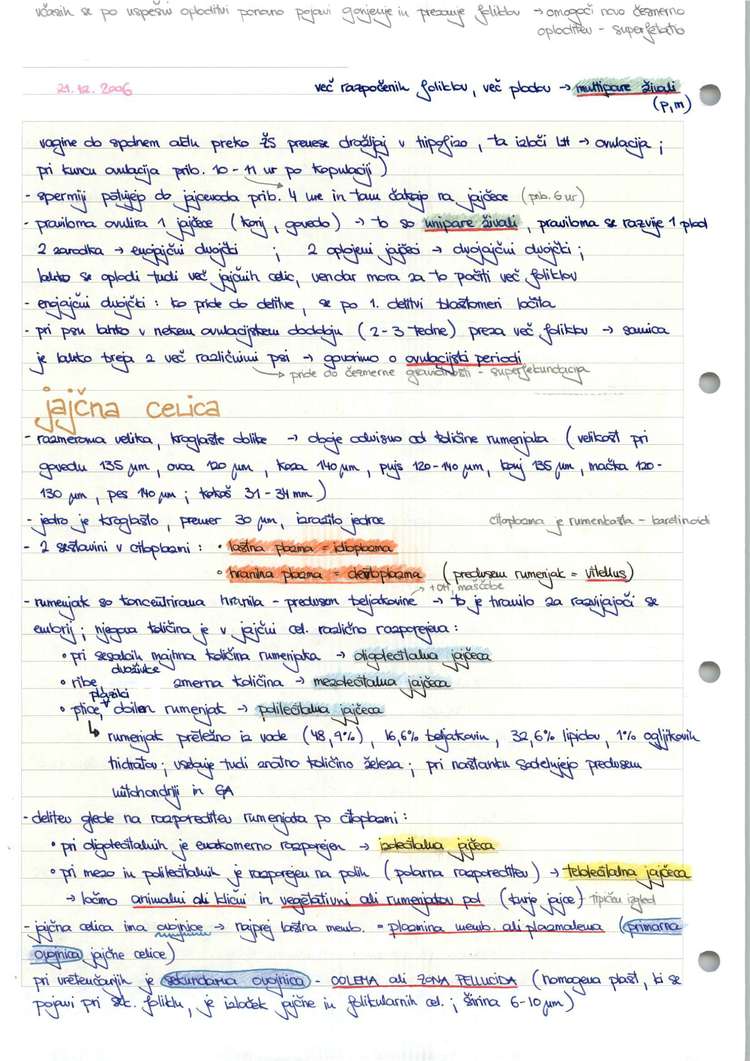 včasih se po uspešni oploditvi ponovno pojavi gonjenje in prezanje foliklov → omogoči novo čezmerno
oploditev - superfetatio
21.12.2006
več razpočenih foliklov, več plodov → multipare živali
(p, m)
vagine do spodnem aktu preko ŽS prenese dražljaj v hipofizo, ta izloči LH → ovulacija ;
pri kuncu ovulacija prib. 10 - 11 ur po kopulaciji)
- spermiji potujejo do jajcevoda prib. 4 ure in tam čakajo na jajčece (prib. 6 ur)
- praviloma ovulira 1 jajčece (konj, govedo) → to so unipare živali, praviloma se razvije 1 plod
2 zarodka → enojajčni dvojčki ; 2 oplojeni jajčeci → dvojajčni dvojčki ;
lahko se oplodi tudi več jajčnih celic, vendar mora za to počiti več foliklov
- enojajčni dvojčki : ko pride do delitve, se po 1. delitvi blastomeri ločita
- pri psu lahko v nekem ovulacijskem obdobju (2-3 tedne) preza več foliklov → samica
je lahko breja z več različnimi psi → govorimo o ovulacijski periodi
→ pride do čezmerne gravidnosti - superfekundacija
jajčna celica
- razmeroma velika, kroglaste oblike → oboje odvisno od količine rumenjaka (velikost pri
govedu 135 µm, ovca 120 µm, koza 140 µm, pujs 120-140 µm, konj 135 µm, mačka 120-
130 µm, pes 140 µm ; kokoš 31-34 mm)
- jedro je kroglasto, premer 30 µm, izrazito jedrce
citoplazma je rumenkasta - karotinoidi
- 2 sestavini v citoplazmi : • lastna plazma = idioplazma
• hranilna plazma = devtoplazma (predvsem rumenjak = vitellus)
→ + OH, maščobe
- rumenjak so koncentrirana hranila - predvsem beljakovine → to je hranilo za razvijajoči se
embrij ; njegova količina je v jajčni cel. različno razporejena :
• pri sesalcih majhna količina rumenjaka → oligolecitalna jajčeca
dvoživke
• ribe zmerna količina → mezolecitalna jajčeca
plazilci
• ptice, + obilen rumenjak → polilecitalna jajčeca
↳ rumenjak pretežno iz vode (48,9%), 16,6% beljakovin, 32,6% lipidov, 1% ogljikovih
hidratov ; vsebuje tudi znatno količino železa ; pri nastanku sodelujejo predvsem
mitohondriji in GA
- delitev glede na razporeditev rumenjaka po citoplazmi :
• pri oligolecitalnih je enakomerno razporejen → izolecitalna jajčeca
• pri mezo in polilecitalnih je razporejen na polih (polarna razporeditev) → telolecitalna jajčeca
→ ločimo animalni ali klični in vegetativni ali rumenjakov pol (kurje jajce) tipičen izgled
- jajčna celica ima ovojnice → najprej lastna memb. = plazmina memb. ali plazmalema (primarna
ovojnica jajčne celice)
pri vretenčarjih je sekundarna ovojnica - OOLEMA ali ZONA PELLUCIDA (homogena plast, ki se
pojavi pri sek. foliklu, je izloček jajčne in folikularnih cel. ; širina 6-10 µm)